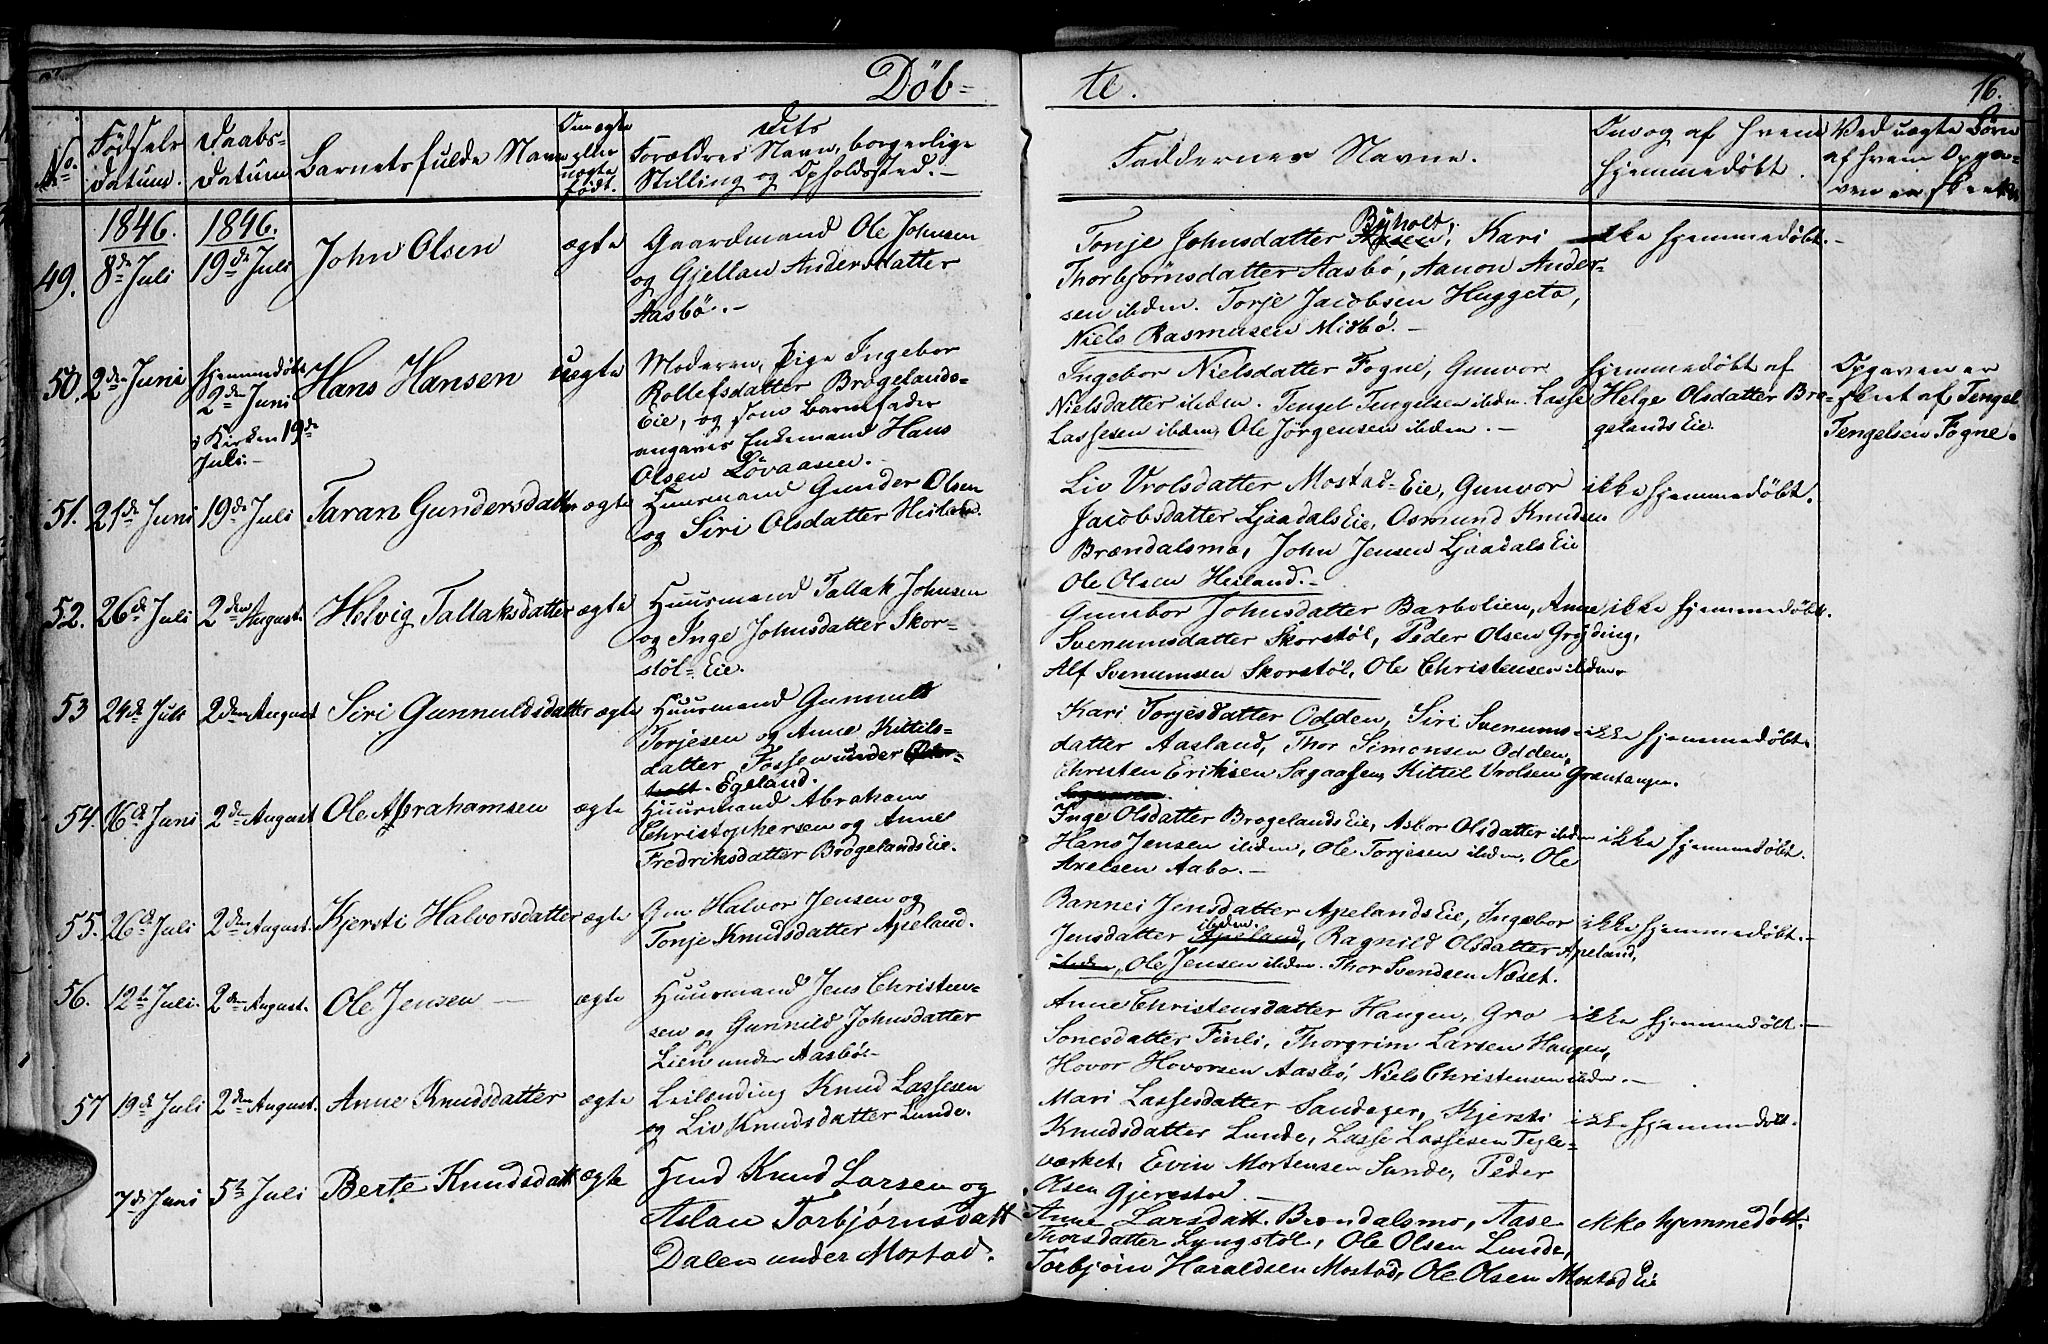 Döb-
te.
16.
No.
Födsels
datum.
Daabs-
datum
Barnets fulde Navn
Om ægte
eller
uægte
født.
Dets
Forældres Navn, borgerlige
Stilling og Opholdssted.-
Faddernes Navne.
Om og af hvem
hjemmedøbt.
Ved uægte Börn
af hvem Opga-
ven er skeet
1846.
1846.
49.
8de Juli
19de Juli
John Olsen
ægte
Gaardmand Ole Johnsen
og Gjellau Andersdatter
Aasbö.-
Tonje Johnsdatter Byholt, Kari
Thorbjörnsdatter Aasbö, Aanon Ander-
sen ibdem. Torje Jacobsen Huggeto,
Niels Rasmusen Midbö.-
ikke hjemmedøbt.-
50.
2den Juni
hjemmedøbt
2de Juni
i Kirken 19de
Juli.-
Hans Hansen
uægte
Moderen, Pige Ingebor
Rollefsdatter Brögelands-
Eie, og som Barnefader
angaves Enkemand Hans
Olsen Lövaasen.-
Ingebor Nielsdatter Fogne, Gunvor
Nielsdatter ibdem. Tengel Tengelsen ibdem. Lasse
Lassesen ibdem, Ole Jörgensen ibdem.-
hjemmedøbt af
Helge Olsdatter Brö-
gelands Eie.
Opgaven er
skeet af Tengel
Tengelsen Fogne.
51.
21de Juni
19de Juli
Taran Gundersdatter
ægte
Huusmand Gunder Olsen
og Siri Olsdatter Heiland.
Liv Vrolsdatter Mostad-Eie, Gunvor
Jacobsdatter Ljaadals Eie, Osmund Knudsen
Brændalsmo, John Jensen Ljaadals Eie
Ole Olsen Heiland.-
ikke hjemmedøbt.
52.
26de Juli
2den August.
Helvig Tallaksdatter
ægte
Huusmand Tallak Johnsen
og Inge Johnsdatter Skor-
stöl-Eie.
Gunbor Johnsdatter Barbolien, Anne
Svenumsdatter Skorstöl, Peder Olsen Gryding,
Alf Svenumsen Skorstöl, Ole Christensen ibdem.
ikke hjemmedøbt.
53
24de Juli
2den August
Siri Gunnuldsdatter
ægte
Huusmand Gunnuld
Torjesen og Anne Kittils-
datter Fossen under
Egeland.
Kari Torjesdatter Odden, Siri Svenums-
datter Aasland, Thor Simonsen Odden,
Christen Eriksen Sagaasen, Kittel Vrolsen Grantangen.
ikke hjemmedøbt.
54.
16de Juni
2den August
Ole Abrahamsen
ægte
Huusmand Abraham
Christophersen og Anne
Fredriksdatter Brögelands Eie.
Inge Olsdatter Brogelands Eie, Asbor Olsdatter ibdem
Hans Jensen ibdem, Ole Torjesen ibdem, Ole
Axelsen Aabo.-
ikke hjemmedøbt.
55.
26de Juli
2den August.
Kjersti Halvorsdatter
ægte
Gm. Halvor Jensen og
Tonje Knudsdatter Apeland.
Bannei Jensdatter Apelands Eie, Ingebor
Jensdatter ibdem. Apeland, Ragnild Olsdatter Apeland,
ibdem, Ole Jensen ibdem. Thor Svendsen Næset.
ikke hjemmedøbt.-
56.
12te Juli.
2den August.
Ole Jensen -
ægte
Huusmand Jens Christen-
sen og Gunnild Johnsdatter
Lien under Aasbö.-
Anne Christensdatter Haugen, Gro
Sonesdatter Finli, Thorgrim Larsen Haugen,
Hovor Hovorsen Aasbö, Niels Christensen ibdem.-
ikke hjemmedøbt.-
57
19de Juli
2den August.
Anne Knudsdatter
ægte
Leilænding Knud Lassesen
og Liv Knudsdatter Lunde.
Mari Lassesdatter Sandager, Kjersti
Knudsdatter Lunde, Lasse Lassesen Tegle-
værket, Evin Mortensen Sunde, Peder
Olsen Gjerestad.-
ikke hjemmedøbt.
7de Juni
5te Juli
Berte Knudsdatt
ægte
Hmd Knud Larsen og
Aslau Torbjørnsdatt
Dalen under Mostad.
Anne Larsdatt. Brændalsmo, Aase
Thorsdatter Lyngstöl, Ole Olsen Lunde,
Torbjörn Haraldsen Mostad, Ole Olsen Mostad Eie
ikke hjemmedøbt.